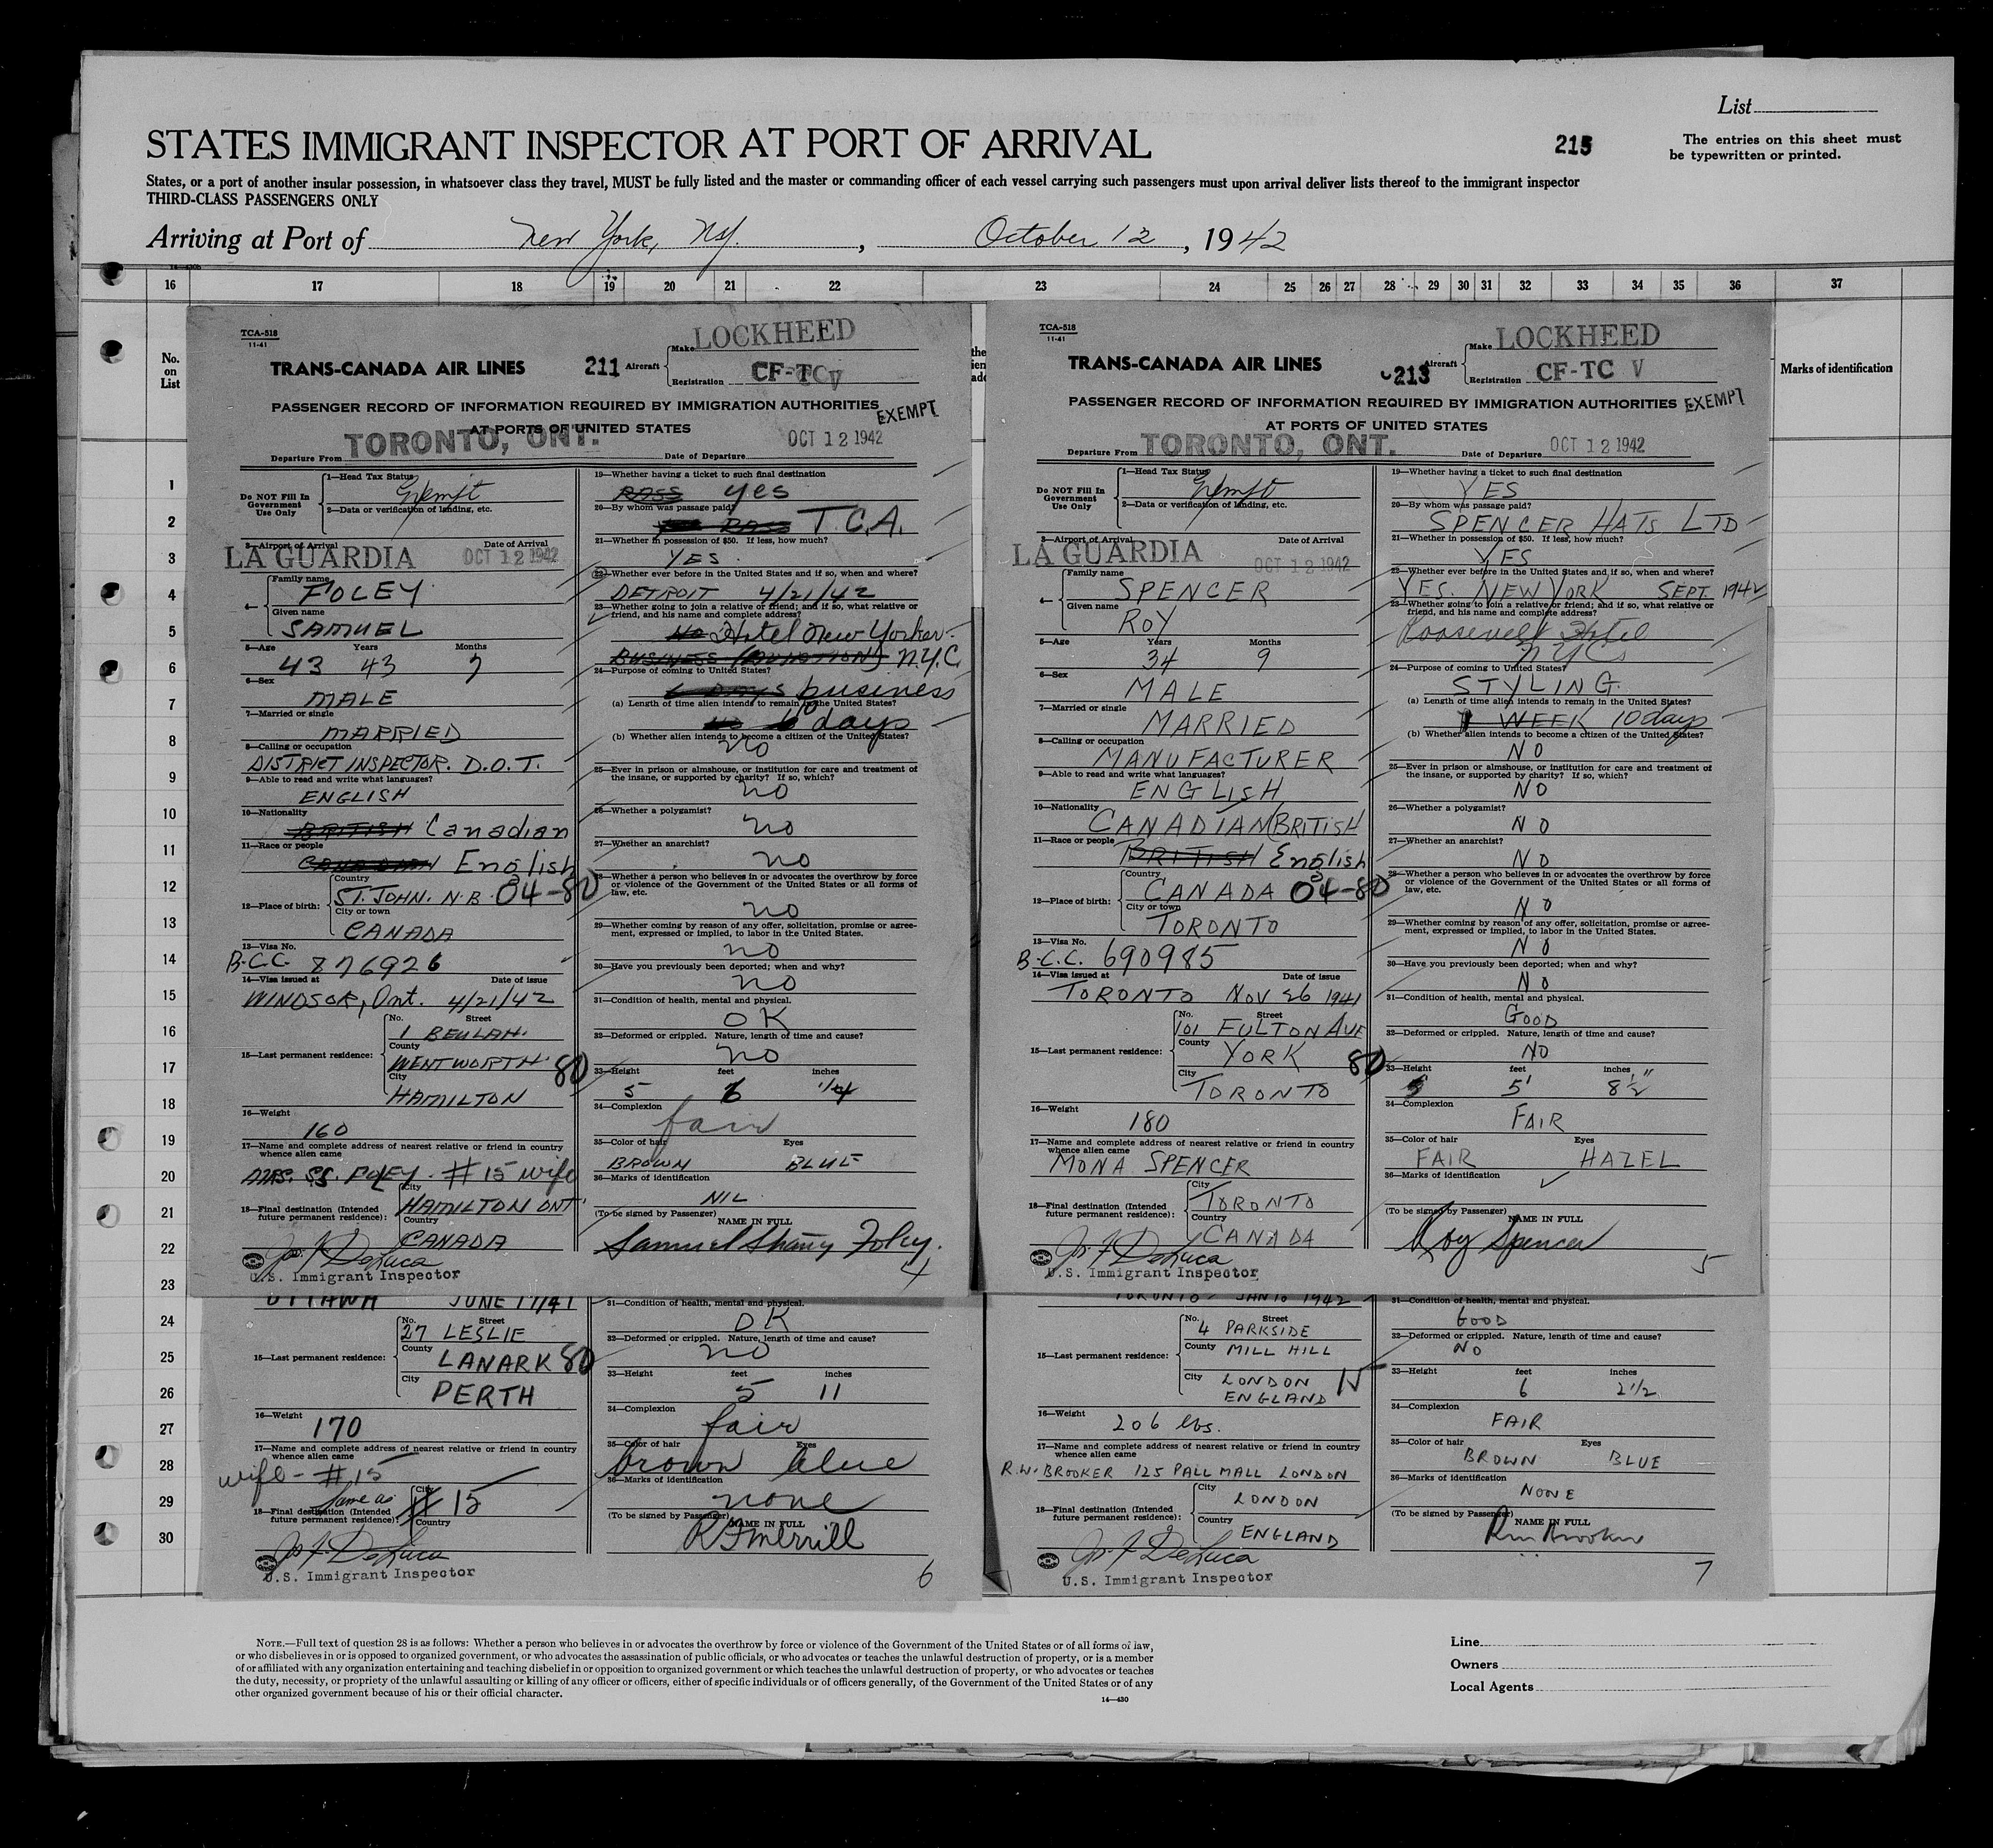 List
STATES IMMIGRANT INSPECTOR AT PORT OF ARRIVAL
215
The entries on this sheet must
be typewritten or printed.
States, or a port of another insular possession, in whatsoever class they travel, MUST be fully listed and the master or commanding officer of each vessel carrying such passengers must upon arrival deliver lists thereof to the immigrant inspector
THIRD-CLASS PASSENGERS ONLY
Arriving at Port of New York, NY. , October 12 , 1942
16 17 18 19 20 21 22 23 24 25 26 27 28 29 30 31 32 33 34 35 36 37
No.
on
List
Marks of identification
1
2
3
4
5
6
7
8
9
10
11
12
13
14
15
16
17
18
19
20
21
22
23
24
25
26
27
28
29
30
TCA-518
11-41
TRANS-CANADA AIR LINES
211 Aircraft
Make LOCKHEED
Registration CF-TC V
PASSENGER RECORD OF INFORMATION REQUIRED BY IMMIGRATION AUTHORITIES
AT PORTS OF UNITED STATES
EXEMPT
Departure From TORONTO, ONT. Date of Departure OCT 12 1942
Do NOT Fill In
Government
Use Only
1—Head Tax Status Exempt
2—Data or verification of landing, etc.
3—Airport of Arrival Date of Arrival
LA GUARDIA OCT 12 1942
4— Family name
FOLEY
Given name
SAMUEL
5—Age Years Months
43 43 7
6—Sex
MALE
7—Married or single
MARRIED
8—Calling or occupation
DISTRICT INSPECTOR. D.O.T.
9—Able to read and write what languages?
ENGLISH
10—Nationality
BRITISH Canadian
11—Race or people
CANADIAN English
12—Place of birth:
Country
ST. JOHN. N.B. 04-80
City or town
CANADA
13—Visa No.
B.C.C. 876926
14—Visa issued at Date of issue
WINDSOR, Ont. 4/21/42
15—Last permanent residence:
No. Street
1 BEULAH.
County
WENTWORTH 80
City
HAMILTON
16—Weight
160
17—Name and complete address of nearest relative or friend in country
whence alien came
MRS. SS. FOLEY. #15 wife
18—Final destination (Intended
future permanent residence):
City
HAMILTON ONT
Country
CANADA
Jos. F. DeLuca
U.S. Immigrant Inspector
19—Whether having a ticket to such final destination
PASS yes
20—By whom was passage paid?
PASS T.C.A.
21—Whether in possession of $50. If less, how much?
YES
22—Whether ever before in the United States and if so, when and where?
DETROIT 4/21/42
23—Whether going to join a relative or friend; and if so, what relative or
friend, and his name and complete address?
No Hotel New Yorker
BUSINESS (AVIATION) N.Y.C.
24—Purpose of coming to United States?
6 DAYS business
(a) Length of time alien intends to remain in the United States?
No 10 days
(b) Whether alien intends to become a citizen of the United States?
no
25—Ever in prison or almshouse, or institution for care and treatment of
the insane, or supported by charity? If so, which?
no
26—Whether a polygamist?
no
27—Whether an anarchist?
no
28—Whether a person who believes in or advocates the overthrow by force
or violence of the Government of the United States or all forms of
law, etc.
no
29—Whether coming by reason of any offer, solicitation, promise or agree-
ment, expressed or implied, to labor in the United States.
no
30—Have you previously been deported; when and why?
no
31—Condition of health, mental and physical.
OK
32—Deformed or crippled. Nature, length of time and cause?
no
33—Height feet inches
5 6 1/4
34—Complexion
fair
35—Color of hair Eyes
BROWN BLUE
36—Marks of identification
NIL
(To be signed by Passenger)
NAME IN FULL
Samuel Foley.
4
TCA-518
11-41
TRANS-CANADA AIR LINES
213 Aircraft
Make LOCKHEED
Registration CF-TC V
PASSENGER RECORD OF INFORMATION REQUIRED BY IMMIGRATION AUTHORITIES
AT PORTS OF UNITED STATES
EXEMPT
Departure From TORONTO, ONT. Date of Departure OCT 12 1942
Do NOT Fill In
Government
Use Only
1—Head Tax Status Exempt
2—Data or verification of landing, etc.
3—Airport of Arrival Date of Arrival
LA GUARDIA OCT 12 1942
4— Family name
SPENCER
Given name
ROY
5—Age Years Months
34 9
6—Sex
MALE
7—Married or single
MARRIED
8—Calling or occupation
MANUFACTURER
9—Able to read and write what languages?
ENGLISH
10—Nationality
CANADIAN (BRITISH
11—Race or people
BRITISH English
12—Place of birth:
Country
CANADA 04-80
City or town
TORONTO
13—Visa No.
B.C.C. 690985
14—Visa issued at Date of issue
TORONTO NOV 26 1941
15—Last permanent residence:
No. Street
101 FULTON AVE
County
YORK 80
City
TORONTO
16—Weight
180
17—Name and complete address of nearest relative or friend in country
whence alien came
MONA SPENCER
18—Final destination (Intended
future permanent residence):
City
TORONTO
Country
CANADA
Jos. F. DeLuca
U.S. Immigrant Inspector
19—Whether having a ticket to such final destination
YES
20—By whom was passage paid?
SPENCER HATS LTD
21—Whether in possession of $50. If less, how much?
YES
22—Whether ever before in the United States and if so, when and where?
YES. NEW YORK SEPT. 1942
23—Whether going to join a relative or friend; and if so, what relative or
friend, and his name and complete address?
Roosevelt Hotel
NYC
24—Purpose of coming to United States?
STYLING.
(a) Length of time alien intends to remain in the United States?
1 WEEK 10 days
(b) Whether alien intends to become a citizen of the United States?
NO
25—Ever in prison or almshouse, or institution for care and treatment of
the insane, or supported by charity? If so, which?
NO
26—Whether a polygamist?
NO
27—Whether an anarchist?
NO
28—Whether a person who believes in or advocates the overthrow by force
or violence of the Government of the United States or all forms of
law, etc.
NO
29—Whether coming by reason of any offer, solicitation, promise or agree-
ment, expressed or implied, to labor in the United States.
NO
30—Have you previously been deported; when and why?
NO
31—Condition of health, mental and physical.
GOOD
32—Deformed or crippled. Nature, length of time and cause?
NO
33—Height feet inches
5' 8 1/2"
34—Complexion
FAIR
35—Color of hair Eyes
FAIR HAZEL
36—Marks of identification
(To be signed by Passenger)
NAME IN FULL
Roy Spencer
5
OTTAWA JUNE 17/41
15—Last permanent residence:
No. Street
27 LESLIE
County
LANARK 80
City
PERTH
16—Weight
170
17—Name and complete address of nearest relative or friend in country
whence alien came
wife - #15
18—Final destination (Intended
future permanent residence):
Same as
City
# 15
Country
Jos. F. DeLuca
U.S. Immigrant Inspector
31—Condition of health, mental and physical.
OK
32—Deformed or crippled. Nature, length of time and cause?
no
33—Height feet inches
5 11
34—Complexion
fair
35—Color of hair Eyes
brown blue
36—Marks of identification
none
(To be signed by Passenger)
NAME IN FULL
R F Merrill
6
TORONTO - JAN 10 1942
15—Last permanent residence:
No. Street
4 PARKSIDE
County MILL HILL
City LONDON
ENGLAND
15
16—Weight
206 lbs.
17—Name and complete address of nearest relative or friend in country
whence alien came
R.W. BROOKER 125 PALL MALL LONDON
18—Final destination (Intended
future permanent residence):
City
LONDON
Country
ENGLAND
Jos. F. DeLuca
U.S. Immigrant Inspector
31—Condition of health, mental and physical.
GOOD
32—Deformed or crippled. Nature, length of time and cause?
NO
33—Height feet inches
6 2 1/2
34—Complexion
FAIR
35—Color of hair Eyes
BROWN BLUE
36—Marks of identification
NONE
(To be signed by Passenger)
NAME IN FULL
Brooker
7
NOTE.—Full text of question 28 is as follows: Whether a person who believes in or advocates the overthrow by force or violence of the Government of the United States or of all forms of law,
or who disbelieves in or is opposed to organized government, or who advocates the assassination of public officials, or who advocates or teaches the unlawful destruction of property, or is a member
of or affiliated with any organization entertaining and teaching disbelief in or opposition to organized government or which teaches the unlawful destruction of property, or who advocates or teaches
the duty, necessity, or propriety of the unlawful assaulting or killing of any officer or officers, either of specific individuals or of officers generally, of the Government of the United States or of any
other organized government because of his or their official character.
14—430
Line
Owners
Local Agents